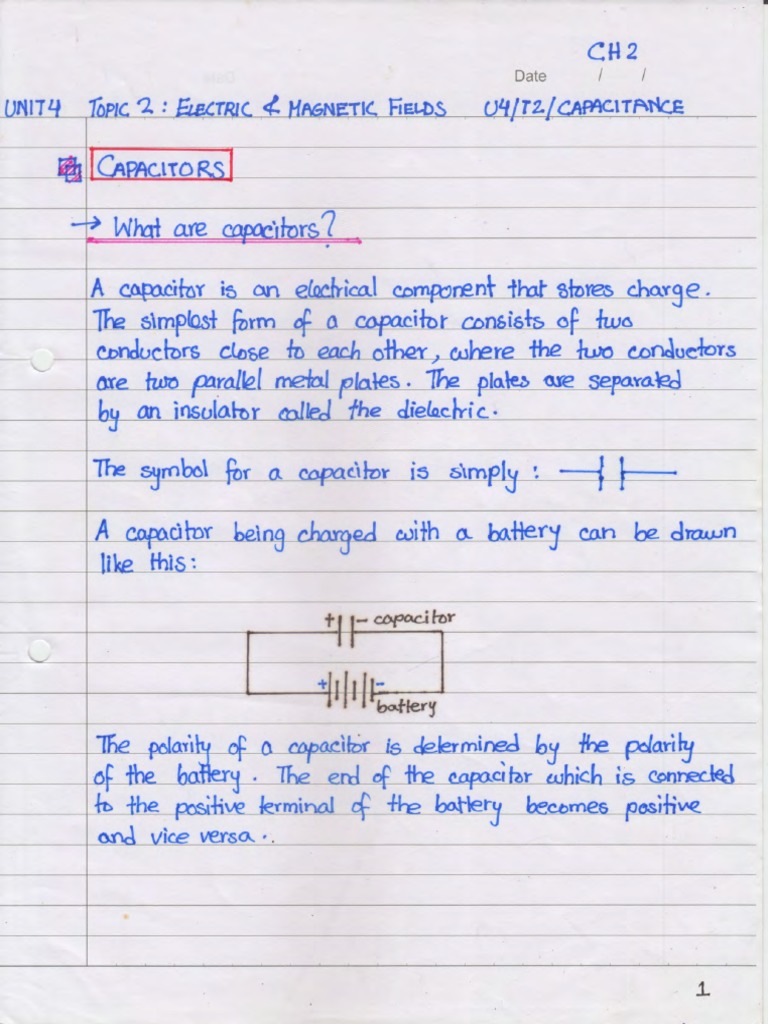 CH2
Date / /
UNIT4 TOPIC 2: ELECTRIC & MAGNETIC FIELDS U4/T2/CAPACITANCE
CAPACITORS
→ What are capacitors?
A capacitor is an electrical component that stores charge.
The simplest form of a capacitor consists of two
conductors close to each other, where the two conductors
are two parallel metal plates. The plates are separated
by an insulator called the dielectric.
The symbol for a capacitor is simply :
A capacitor being charged with a battery can be drawn
like this:
+ - capacitor
+ -
battery
The polarity of a capacitor is determined by the polarity
of the battery. The end of the capacitor which is connected
to the positive terminal of the battery becomes positive
and vice versa..
1